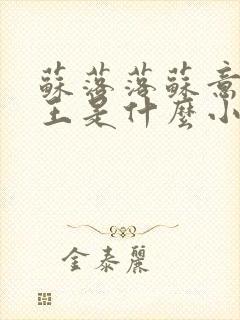 蘇落落蘇意
主是什麼小
金泰麗